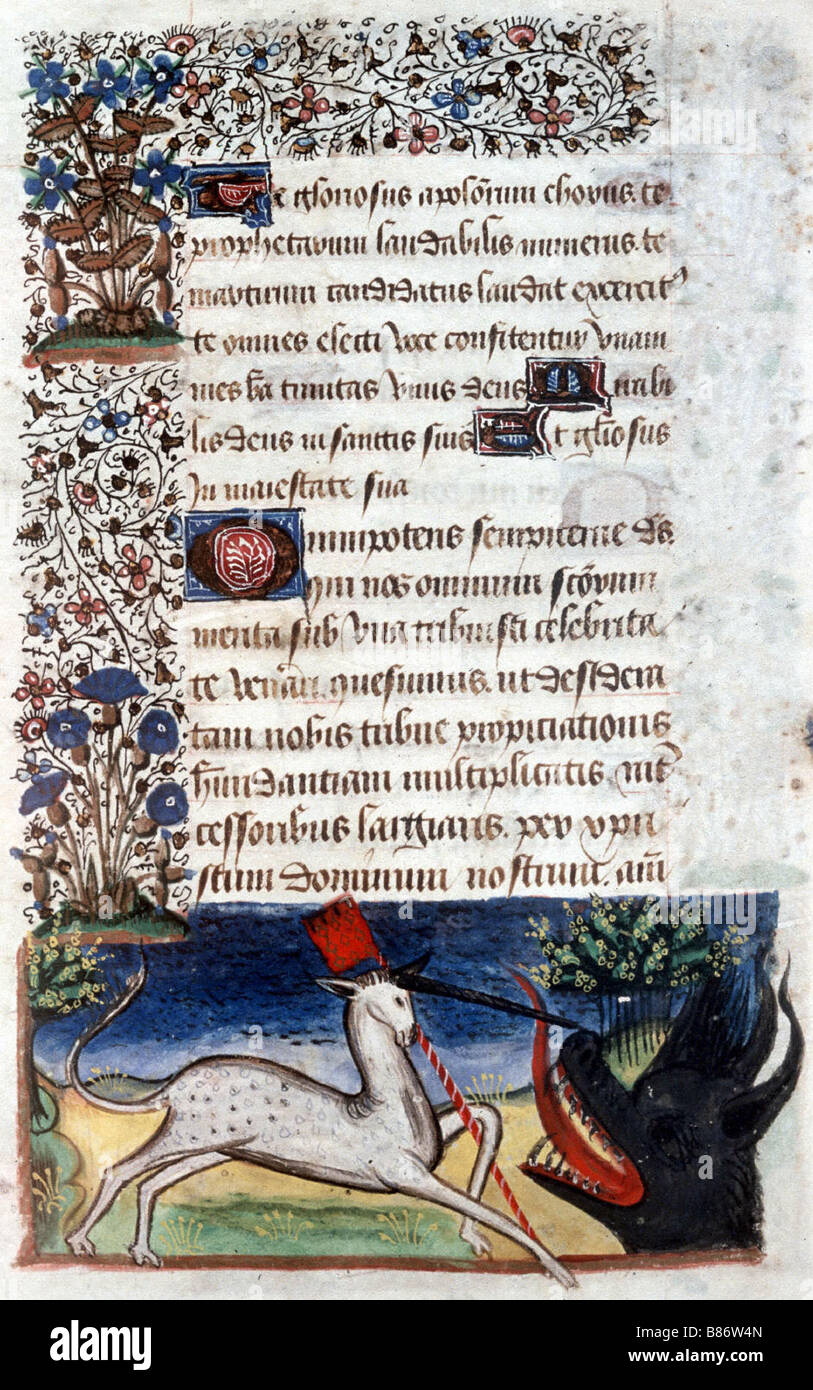 Te gloriosus aposto᷑rum chorus. te
prophetarum laudabilis numerus. te
martirum candidatus laudat exercit⁹
te omnes electi voce confitentur vnani
mes bt̃a trinitas vnus deus Mirabi
lis deus in sanctis suis Et glio̅sus
In maiestate sua
Omnipotens sempiterne ds̃.
qui nos omnium sto̅rum
merita sub vna tribuisti celebrita
te venerari. quesumus. ut desidera
tam nobis tribue propiciationis
habundantiam multiplicatis inter
cessoribus largiaris. per xp̅ri
stum dominum nostrum. am̅
alamy
Image ID: B86W4N
www.alamy.com